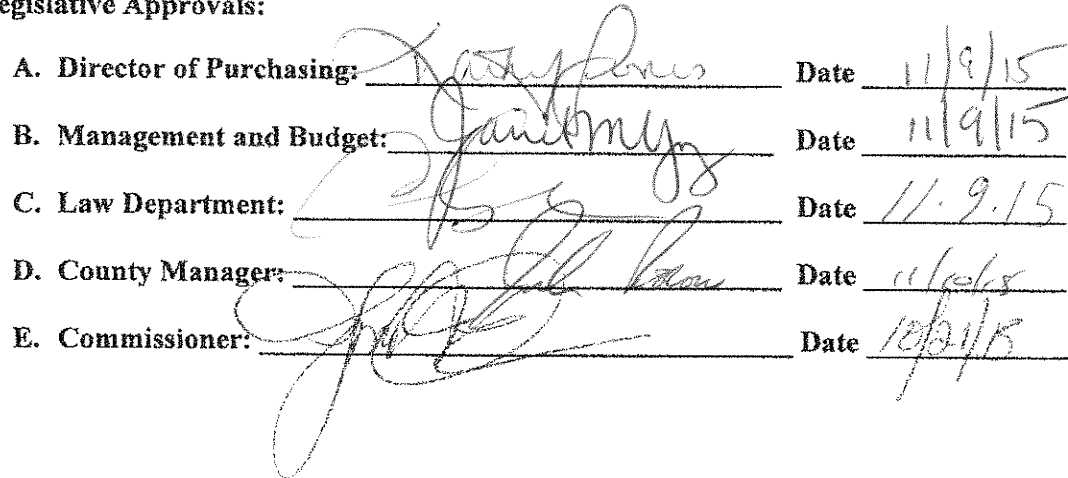 egislative Approvals:
A. Director of Purchasing: Kathy Jones Date 11/9/15
B. Management and Budget: Date 11/9/15
C. Law Department: Date 11.9.15
D. County Manager: Date 11/10/15
E. Commissioner: Date 10/21/15